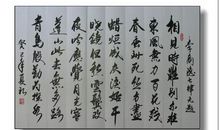 李商隱七律無題
相見時難別亦難
東風無力百花殘
春蠶到死絲方盡
蠟炬成灰淚始乾
曉鏡但愁雲鬢改
夜吟應覺月光寒
蓬山此去無多路
青鳥殷勤為探看